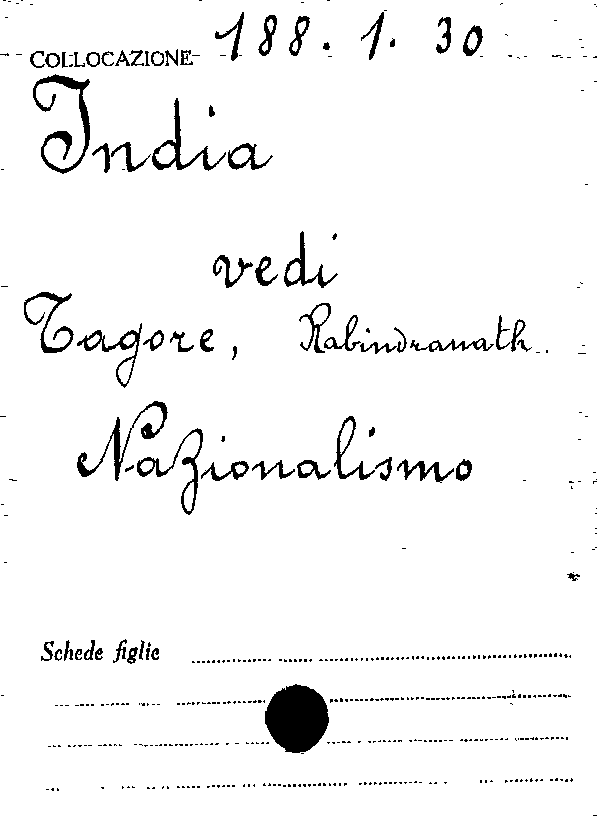 COLLOCAZIONE 188. 1. 30
India
vedi
Tagore, Rabindranath.
Nazionalismo
Schede figlie